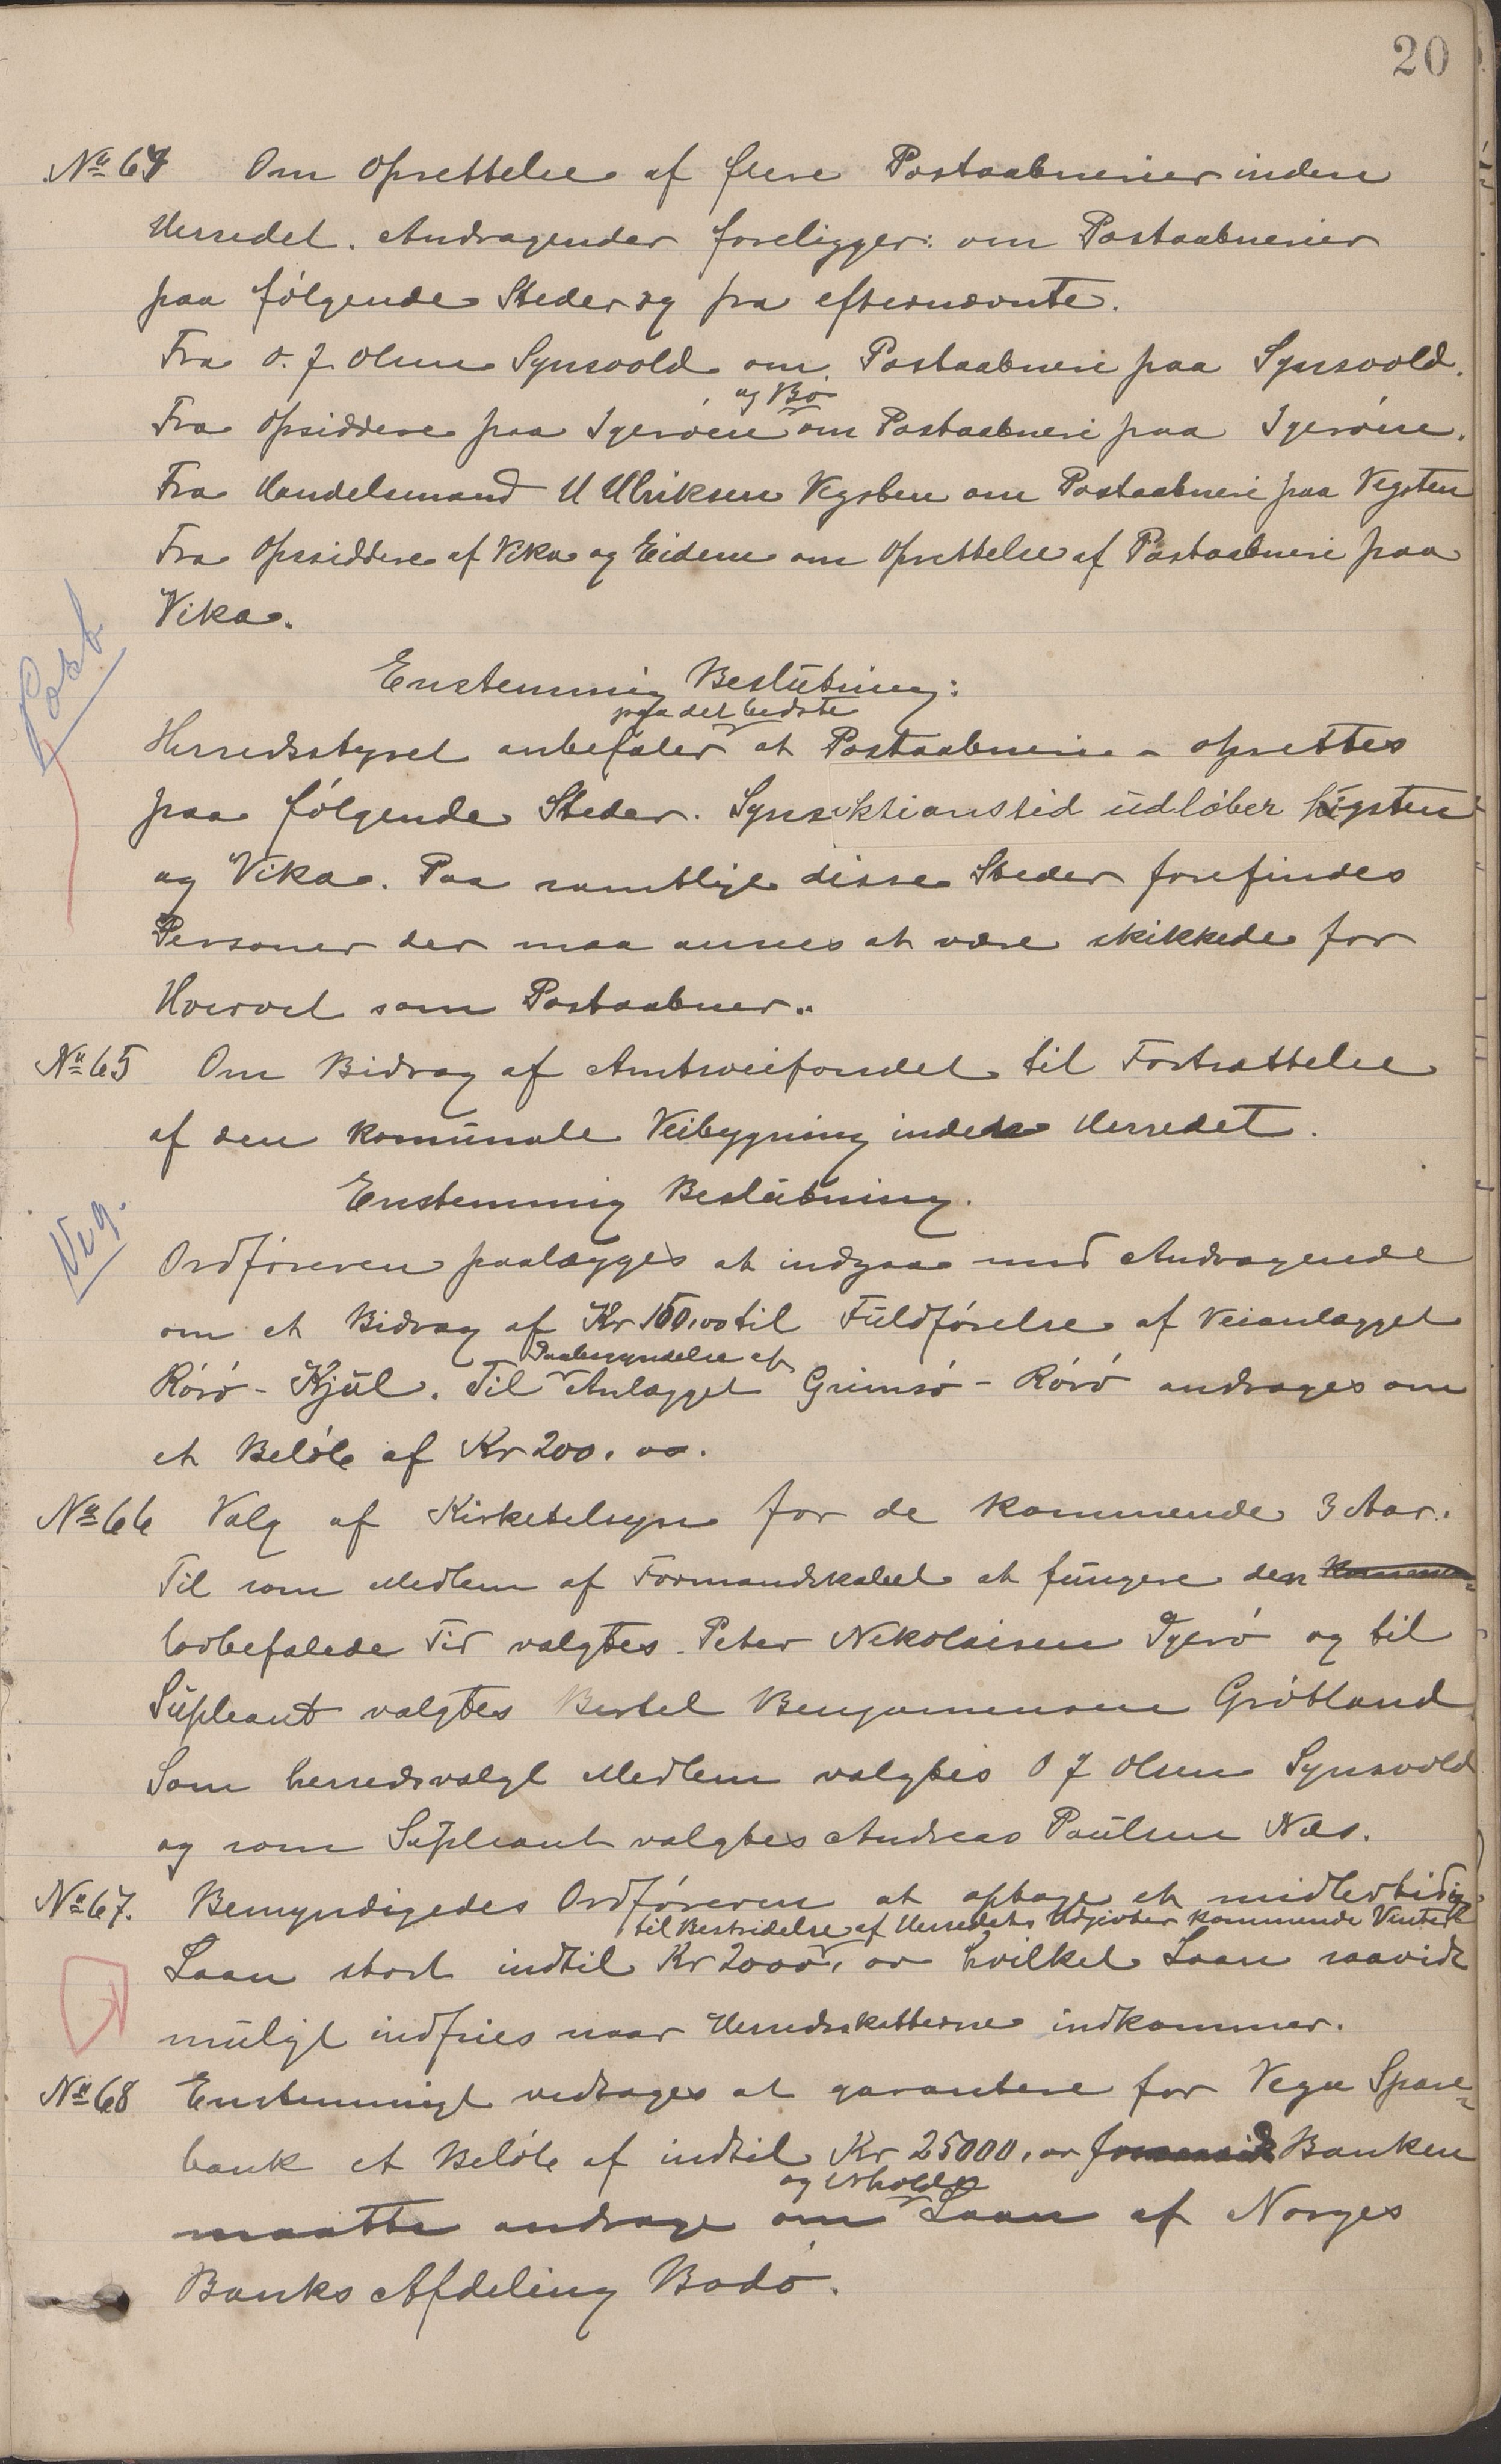 20
No 64 Om Oprettelse af flere Postaabnerier inden
Herredet. Andragender foreligger: om Postaabnerier
paa følgende Steder og fra efternævnte.
Fra O. J. Olsen Synsvold om Postaabneri paa Synsvold.
og Bø
Fra Opsiddere paa Igerøen om Postaabneri paa Igerøen.
Fra Handelsmand U Ulriksen Vegsten om Postaabneri paa Vegsten
Fra Opssiddere af Vika og Eidem om Oprettelse af Postaabneri paa
Vika.
Post
Enstemmig Beslutning:
paa det bedste
Herredsstyret anbefaler at Postaabneri - oprettes
paa følgende Steder. Syns ktionstid udløber gsten
og Vika. Paa samtlige disse Steder forefindes
Personer der maa ansees at være skikkede for
Hvervet som Postaabner.
No 65 Om Bidrag af Amtsveifondet til Fortsættelse
af den komunale Veibygning inden Herredet.
Enstemmig Beslutning.
Veg.
Ordføreren paalægges at indgaa med Andragende
om et Bidrag af Kr 150.00 til Fuldførelse af Veianlægget
Paabegyndelse af
Rørø - Kjul. Til Anlægget Grimsø - Rørø andrages om
et Beløb af Kr 200.00.
No 66 Valg af Kirketilsyn for de kommende 3 Aar.
Til som Medlem af Formandskabet at fungere den
lovbefalede Tid valgtes Peter Nikolaisen Igerø og til
Supleant valgtes Bertel Benjamensen Grøtland
Som herredsvalgt Medlem valgtes O J Olsen Synsvold
og som Supleant valgtes Andreas Paulsen Næs.
No 67. Bemyndigedes Ordføreren at optage et midlertidig
til Bestridelse af Herredets Udgivter kommende Vinter
Laan stort indtil Kr 2000,00 hvilket Laan saavidt
muligt indfries naar Herredsskatterne indkommer.
No 68 Enstemmigt vedtages at garantere for Vega Spare-
bank et Beløb af indtil Kr 25000,00 Banken
og erholde
maatte andrage om Laan af Norges
Banks Afdeling Bodø.